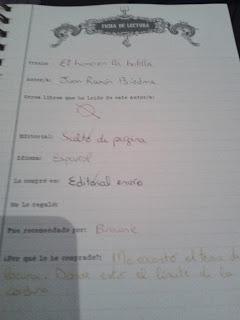 FICHA DE LECTURA
Título: El hombre en la botella
Autor/a: Juan Ramón Biedma
Otros libros que he leído de este autor/a:
Editorial: Salto de página
Idioma: Español
Lo compré en: Editorial envío
Me lo regaló:
Fue recomendado por:
¿Por qué lo he comprado?: Me encantó el tema de
locura. Donde está el límite de la
cordura